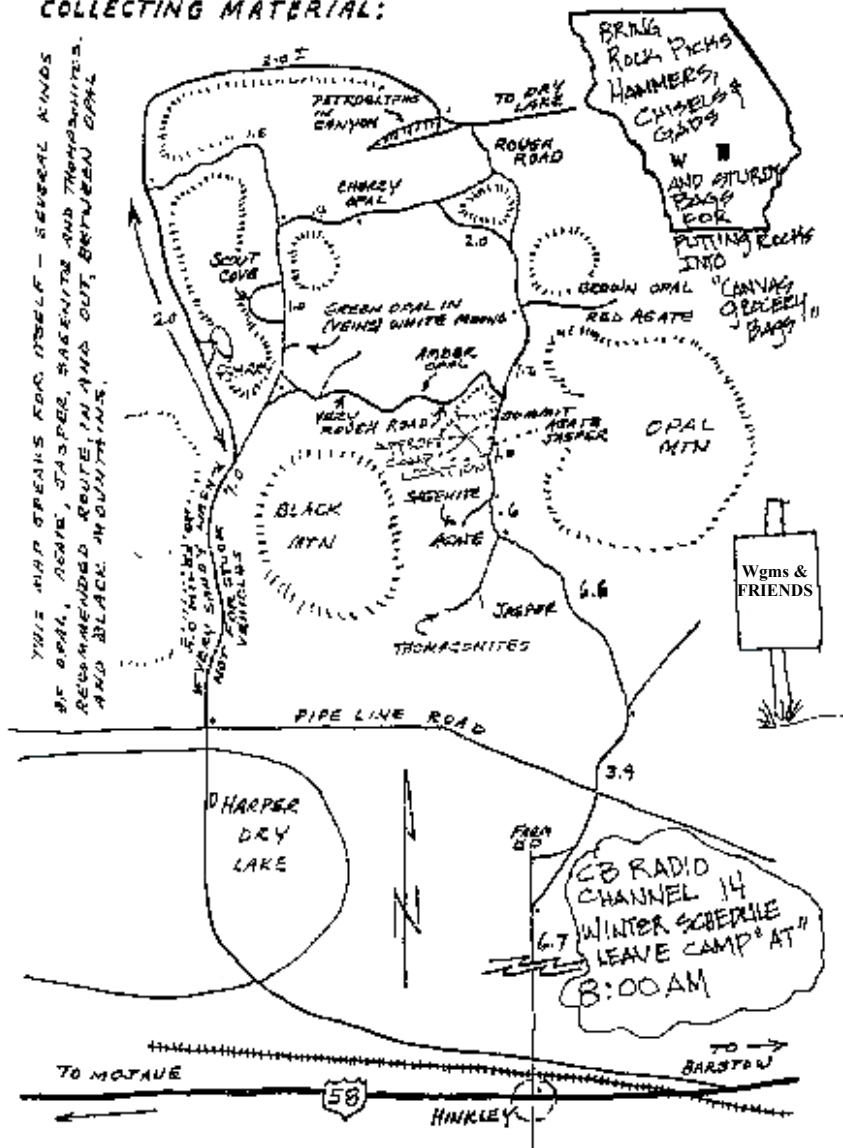 COLLECTING MATERIAL:
THIS MAP SPEAKS FOR ITSELF - SEVERAL KINDS
OF OPAL, AGATE, JASPER, SAGENITE AND THOMPSONITES.
RECOMMENDED ROUTE, IN AND OUT, BETWEEN OPAL
AND BLACK MOUNTAINS.
BRING
ROCK PICKS
HAMMERS,
CHISELS &
GADS
W
AND STURDY
BAGS
FOR
PUTTING ROCKS
INTO
"CANVAS
GROCERY
BAGS"
2.0 ±
PETROGLYPHS
IN
CANYON
TO DRY
LAKE
ROUGH
ROAD
1.6
CHERRY
OPAL
2.0
SCOUT
COVE
1.0
GREEN OPAL IN
(VEINS) WHITE MOUND
BROWN OPAL
RED AGATE
2.0
QUARRY
AMBER
OPAL
VERY
ROUGH ROAD
SUMMIT
AGATE
JASPER
OPAL
MTN
CAMP
LOCATION
SAGENITE
.6
AGATE
BLACK
MTN
VERY SANDY WASH
NOT FOR STOCK
VEHICLES
6.6
JASPER
THOMPSONITES
Wgms &
FRIENDS
PIPE LINE ROAD
3.4
HARPER
DRY
LAKE
N
FARM
6.7
CB RADIO
CHANNEL 14
WINTER SCHEDULE
LEAVE CAMP "AT"
8:00 AM
TO MOJAVE
58
HINKLEY
TO
BARSTOW